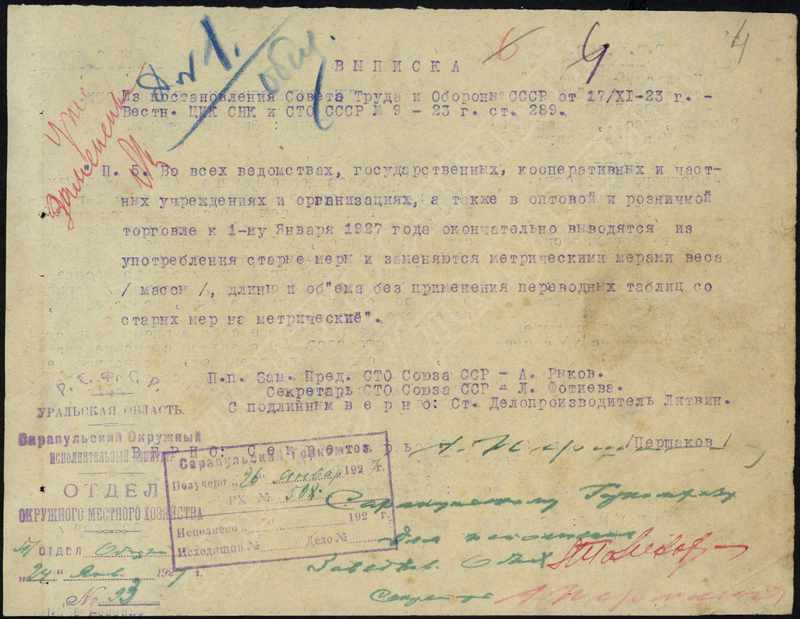 4
6
4
ВЫПИСКА
Из Постановления Совета Труда и Обороны СССР от 17/XI-23 г. -
Вестн. ЦИК СНК и СТО СССР № 9 - 23 г. ст. 289.
П. 5. Во всех ведомствах, государственных, кооперативных и част-
ных учреждениях и организациях, а также в оптовой и розничной
торговле к 1-му Января 1927 года окончательно выводятся из
употребления старые меры и заменяются метрическими мерами веса
/ массы /, длины и об"ема без применения переводных таблиц со
старых мер на метрические".
П.п. Зам. Пред. СТО Союза ССР - А. Рыков.
Секретарь СТО Союза ССР - Л. Фотиева.
С подлинным верно: Ст. Делопроизводитель Литвин.
ВЕРНО: Секретарь
/Першаков/
Р.С.Ф.С.Р.
УРАЛЬСКАЯ ОБЛАСТЬ.
Сарапульский Окружный
исполнительный
ОТДЕЛ
ОКРУЖНОГО МЕСТНОГО ХОЗЯЙСТВА
отдел
"24" Янв. 1927 г.
№ 23
Сарапульский Горкомхоз
Получено "26" январ 1927 г.
ВХ № 508
Исполнено 192 г.
Исходящий № Дело №
Сарапульскому
Для
Секретарь